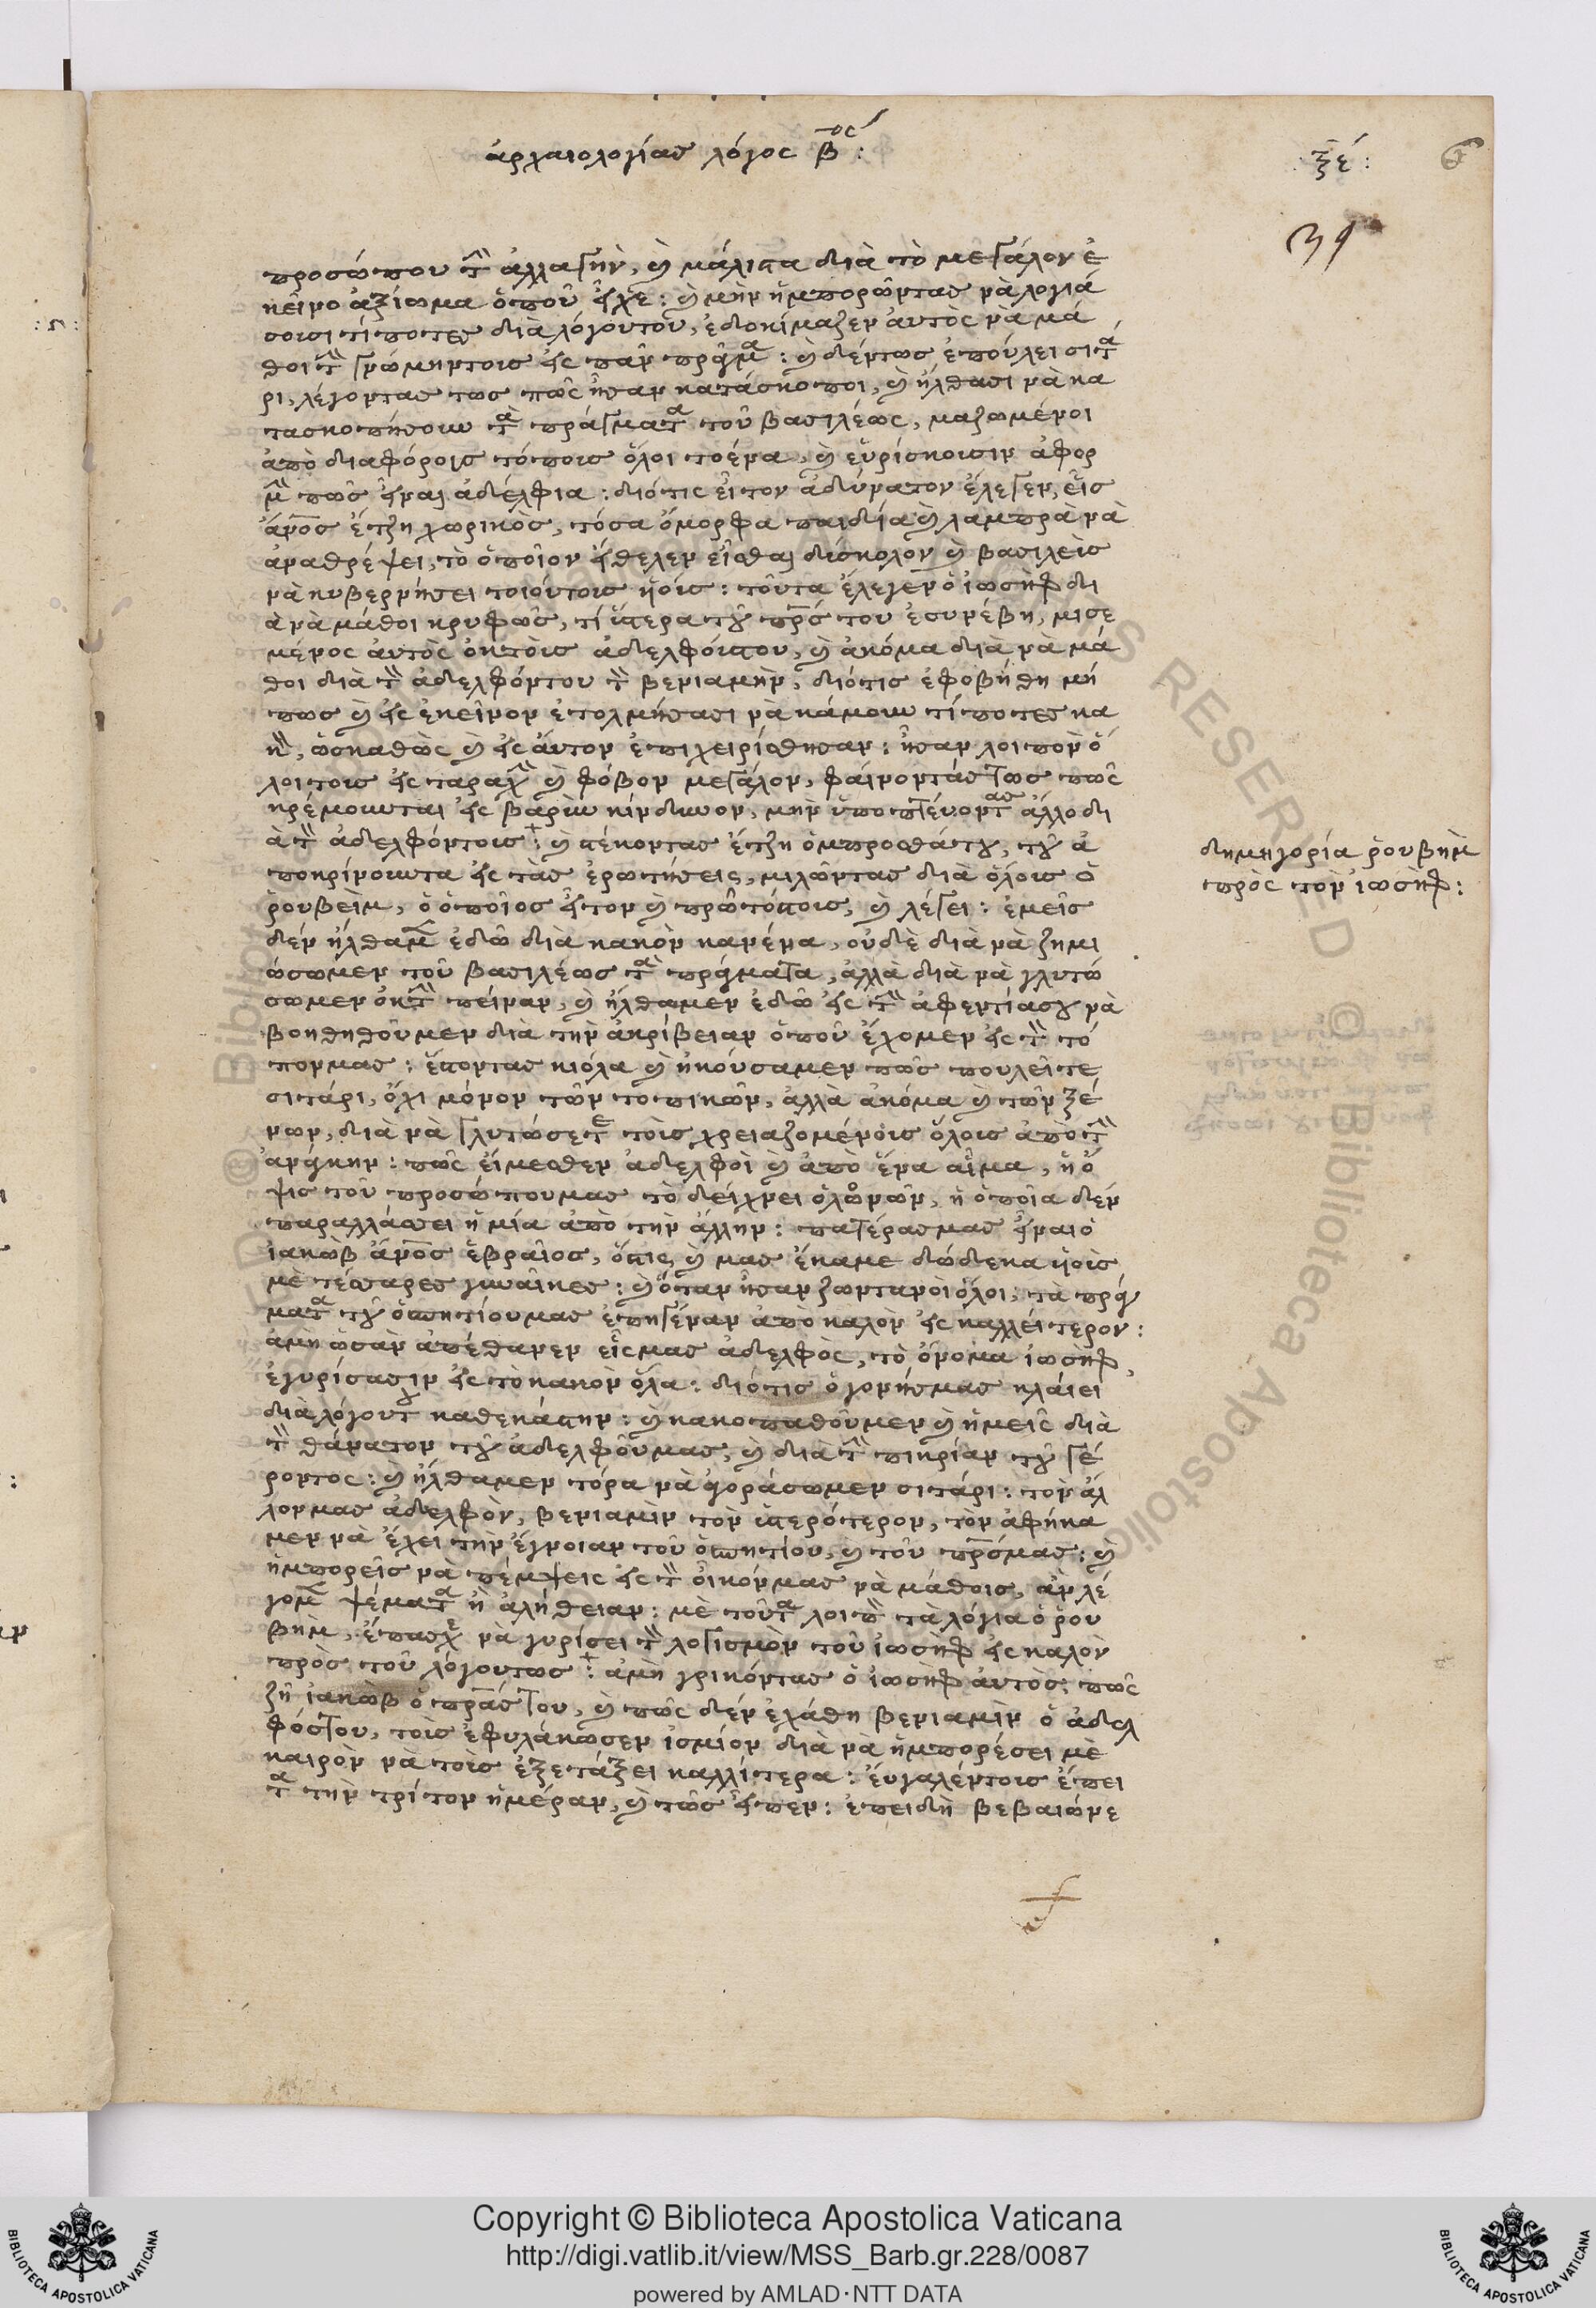 ἀρχαιολογίας λόγος β^ος :
ξέ :
39
προσώπου τ̑ ἀλλαγὴν, ϗ μάλιστα διὰ τὸ μεγάλον ἐ
κεῖνο ἀξίωμα ὁποῦ εἶχε : ϗ μὴν ἠμπορῶντας νὰ λογιά
σουσι τίποτες διὰ λόγουτου, ἐδοκίμαζεν ἀυτὸς νὰ μά
θοι τ̀ γνώμηντους εἰς πᾶν πρᾶγμα : ϗ δέντως ἐπούλει σιτά
ρι, λέγοντας τως πῶς ἦσαν κατάσκοποι, ϗ ἤλθασι νὰ κα
τασκοπήσουν τὰ πράγματα τοῦ βασιλέως, μαζωμένοι
ἀπὸ διαφόρους τόπους ὅλοι τοένα, ϗ εὑρίσκουσιν ἀφορ
μ̀ πῶς εἶναι ἀδέλφια : διότις εἶτον ἀδύνατον ἔλεγεν, εἷς
ἄν̅ο̅ς ἔτζη χωρικὸς, τόσα ὄμορφα παιδία ϗ λαμπρὰ νὰ
ἀναθρέψει, τὸ ὁποῖον ἤθελεν εἶσθαι δύσκολον ϗ βασιλεὺς
νὰ κυβερνήσει τοιούτους ὑοίς : τοῦτα ἔλεγεν ὁ ἰωσὴφ δι
ὰ νὰ μάθοι κρυφῶς, τί ὕστερα τοῦ π̅ρ̅ς του ἐσυνέβη, μισε
μένος ἀυτὸς ὀκτοὺς ἀδελφούςτου, ϗ ἀκόμα διὰ νὰ μά
θοι διὰ τ̀ ἀδελφόντου τ̀ βενιαμὴν, διότις ἐφοβήθη μή
πως ϗ εἰς ἐκεῖνον ἐτολμήσασι νὰ κάμουν τίποτες κα
κ̀, ὡσκαθὼς ϗ εἰς ἀυτον ἐπιχειρίσθησαν : ἦσαν λοιπὸν ὅ
λοιτους εἰς ταραχ̀ ϗ φόβον μεγάλον, φαίνοντάςτως πῶς
κρέμουνται εἰς βαρὺν κίνδυνον, μὴν ὑποπτέυοντας ἄλλο δι
ὰ τ̀ ἀδελφόντους : ϗ στέκοντας ἔτζη ὀμπροσθάτου, τοῦ ἀ
ποκρίνουντα εἰς τὰς ἐρωτήσεις, μιλῶντας διὰ ὅλους ὁ
ῥουβεὶμ, ὁ ὁποῖος εἶτον ϗ πρωτότοκος, ϗ λέγει : ἐμεῖς
δέν ἤλθαμεν ἐδῶ διὰ κακὸν κανένα, οὐδὲ διὰ νὰ ζημι
ώσωμεν τοῦ βασιλέως τὰ πράγματα, ἀλλὰ διὰ νὰ γλυτώ
σωμεν ὀκτ̀ πείναν, ϗ ἤλθαμεν ἐδῶ εἰς τ̀ ἀφεντίασου νὰ
βοηθηθοῦμεν διὰ τὴν ἀκρίβειαν ὁποῦ ἔχομεν εἰς τ̀ τό
πονμας : ἔστοντας κιόλα ϗ ἠκούσαμεν πῶς πουλεῖτε
σιτάρι, ὄχι μόνον τῶν τοπικῶν, ἀλλὰ ἀκόμα ϗ τῶν ξέ
νων, διὰ νὰ γλυτώσετε τοὺς χρειαζομένους ὅλους ἀπὸ τ̀
ἀνάγκην : πῶς εἴμεσθεν ἀδελφοὶ ϗ ἀπὸ ἕνα αἷμα, ἡ ὄ
ψις τοῦ προσώπουμας τὸ δείχνει ὁλωνῶν, ἡ ὁποῖα δέν
παραλλάσσει ἡ μία ἀπὸ τὴν ἄλλην : πατέρασμας εἶναι ὁ
ἰακὼβ ἄν̅ο̅ς ἑβραῖος, ὅστις ϗ μας ἔκαμε δώδεκα ὑοὶς
μὲ τέσσαρες γυναῖκες : ϗ ὅταν ἦσαν ζωντανοὶ ὅλοι, τὰ πράγ
ματα τοῦ ὁσπητίουμας ἐπηγέναν ἀπὸ καλὸν εἰς καλλείτερον :
ἀμὴ ὡσὰν ἀπέθανεν εἷςμας ἀδελφὸς, τὸ ὄνομα ἰωσὴφ,
ἐγυρίσασιν εἰς τὸ κακὸν ὅλα : διότις ὁ γονήςμας κλάιει
διὰ λόγουτου καθεκάστην : ϗ κακοπαθοῦμεν ϗ ἡμεῖς διὰ
τ̀ θάνατον τοῦ ἀδελφοῦμας, ϗ διὰ τ̀ πικρίαν τοῦ γέ
ροντος : ϗ ἤλθαμεν τόρα νὰ ἀγοράσωμεν σιτάρι : τὸν ἄλ
λονμας ἀδελφὸν, βενιαμὶν τὸν ὑστερότερον, τὸν ἀφήκα
μεν νὰ ἔχει τὴν ἔγνοιαν τοῦ ὁσπητίου, ϗ τοῦ π̅ρ̅όςμας : ϗ
ἠμπορεῖς νὰ πέμψεις εἰς τ̀ οἶκόνμας νὰ μάθοις, ἂν λέ
γομεν ψέματα ἢ ἀλήθειαν : μὲ τοῦτα λοιπ̀ τὰ λόγια ὁ ῥου
βὴμ, ἔπασχε νὰ γυρίσει τ̀ λογισμὸν τοῦ ἰωσὴφ εἰς καλὸν
πρὸς τοῦ λόγουτως : ἀμὴ γρικόντας ὁ ἰωσὴφ ἀυτὸς, πῶς
ζῆ ἰακὼβ ὁ π̅ρ̅άς του, ϗ πῶς δέν ἐχάθη βενιαμὶν ὁ ἀδελ
φόςτου, τοὺς ἐφυλάκωσεν ἰσμίον διὰ νὰ ἠμπορέσει μὲ
καιρὸν νὰ τοὺς ἐξετάξει καλλίτερα : ἐυγαλέντους ἔπει
τα τὴν τρίτον ἡμέραν, ϗ τῶς εἶπεν : ἐπειδὴ βεβαιώνε
δημηγορία ῥουβὴμ
πρὸς τὸν ἰωσὴφ :
Copyright © Biblioteca Apostolica Vaticana
http://digi.vatlib.it/view/MSS_Barb.gr.228/0087
powered by AMLAD·NTT DATA